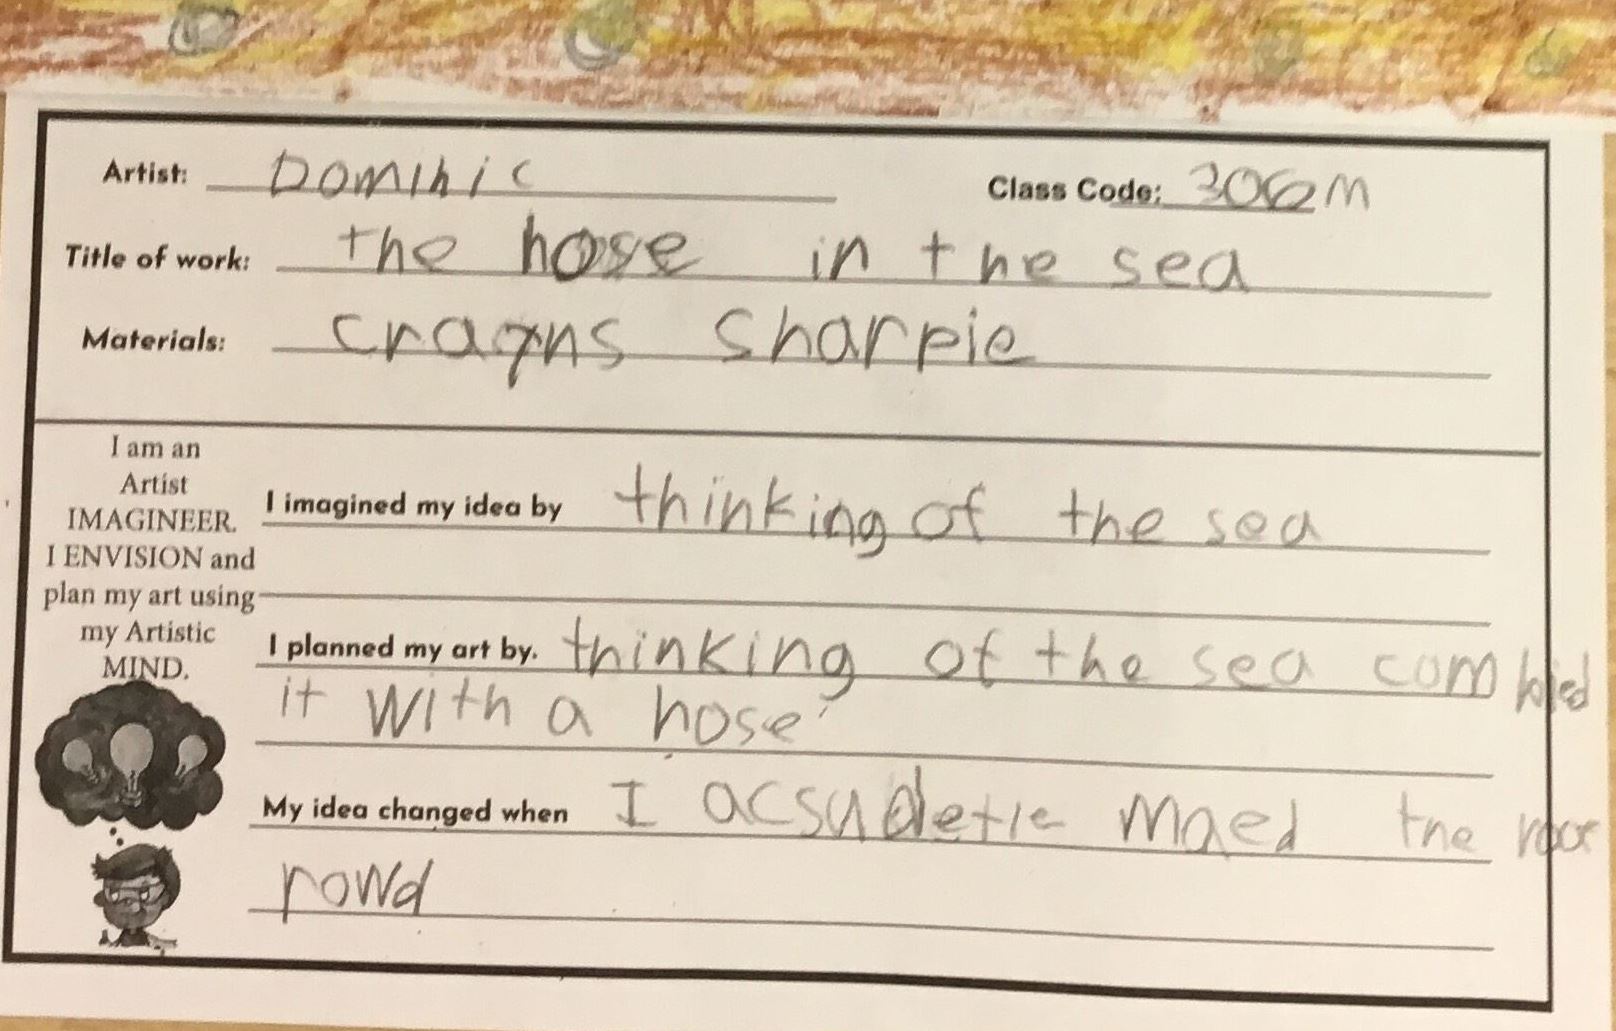 Artist: Dominic Class Code: 306M
Title of work: the hose in the sea
Materials: crayns sharpie
I am an
Artist
IMAGINEER.
I ENVISION and
plan my art using
my Artistic
MIND.
I imagined my idea by thinking of the sea
I planned my art by. thinking of the sea combied
it with a hose
My idea changed when I acsudetle maed the
rowd